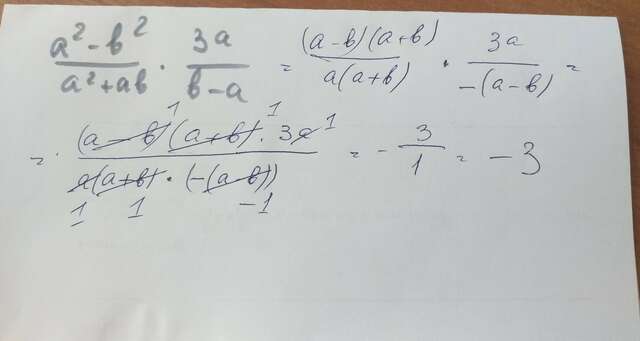 (a² - b²)/(a² + ab) · 3a/(b - a) = (a - b)(a + b)/(a(a + b)) · 3a/(-(a - b)) =
= (a - b)(a + b) · 3a/(a(a + b) · (-(a - b))) = - 3/1 = - 3